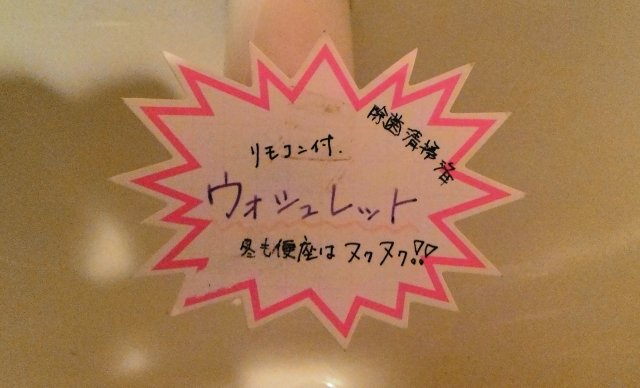 除菌清掃済
リモコン付.
ウォシュレット
冬も便座はヌクヌク!!